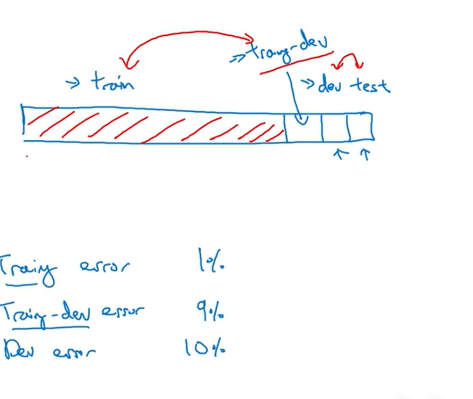 → train
→ traing-dev
→ dev test
Traing error 1%
Traing-dev error 9%
Dev error 10%